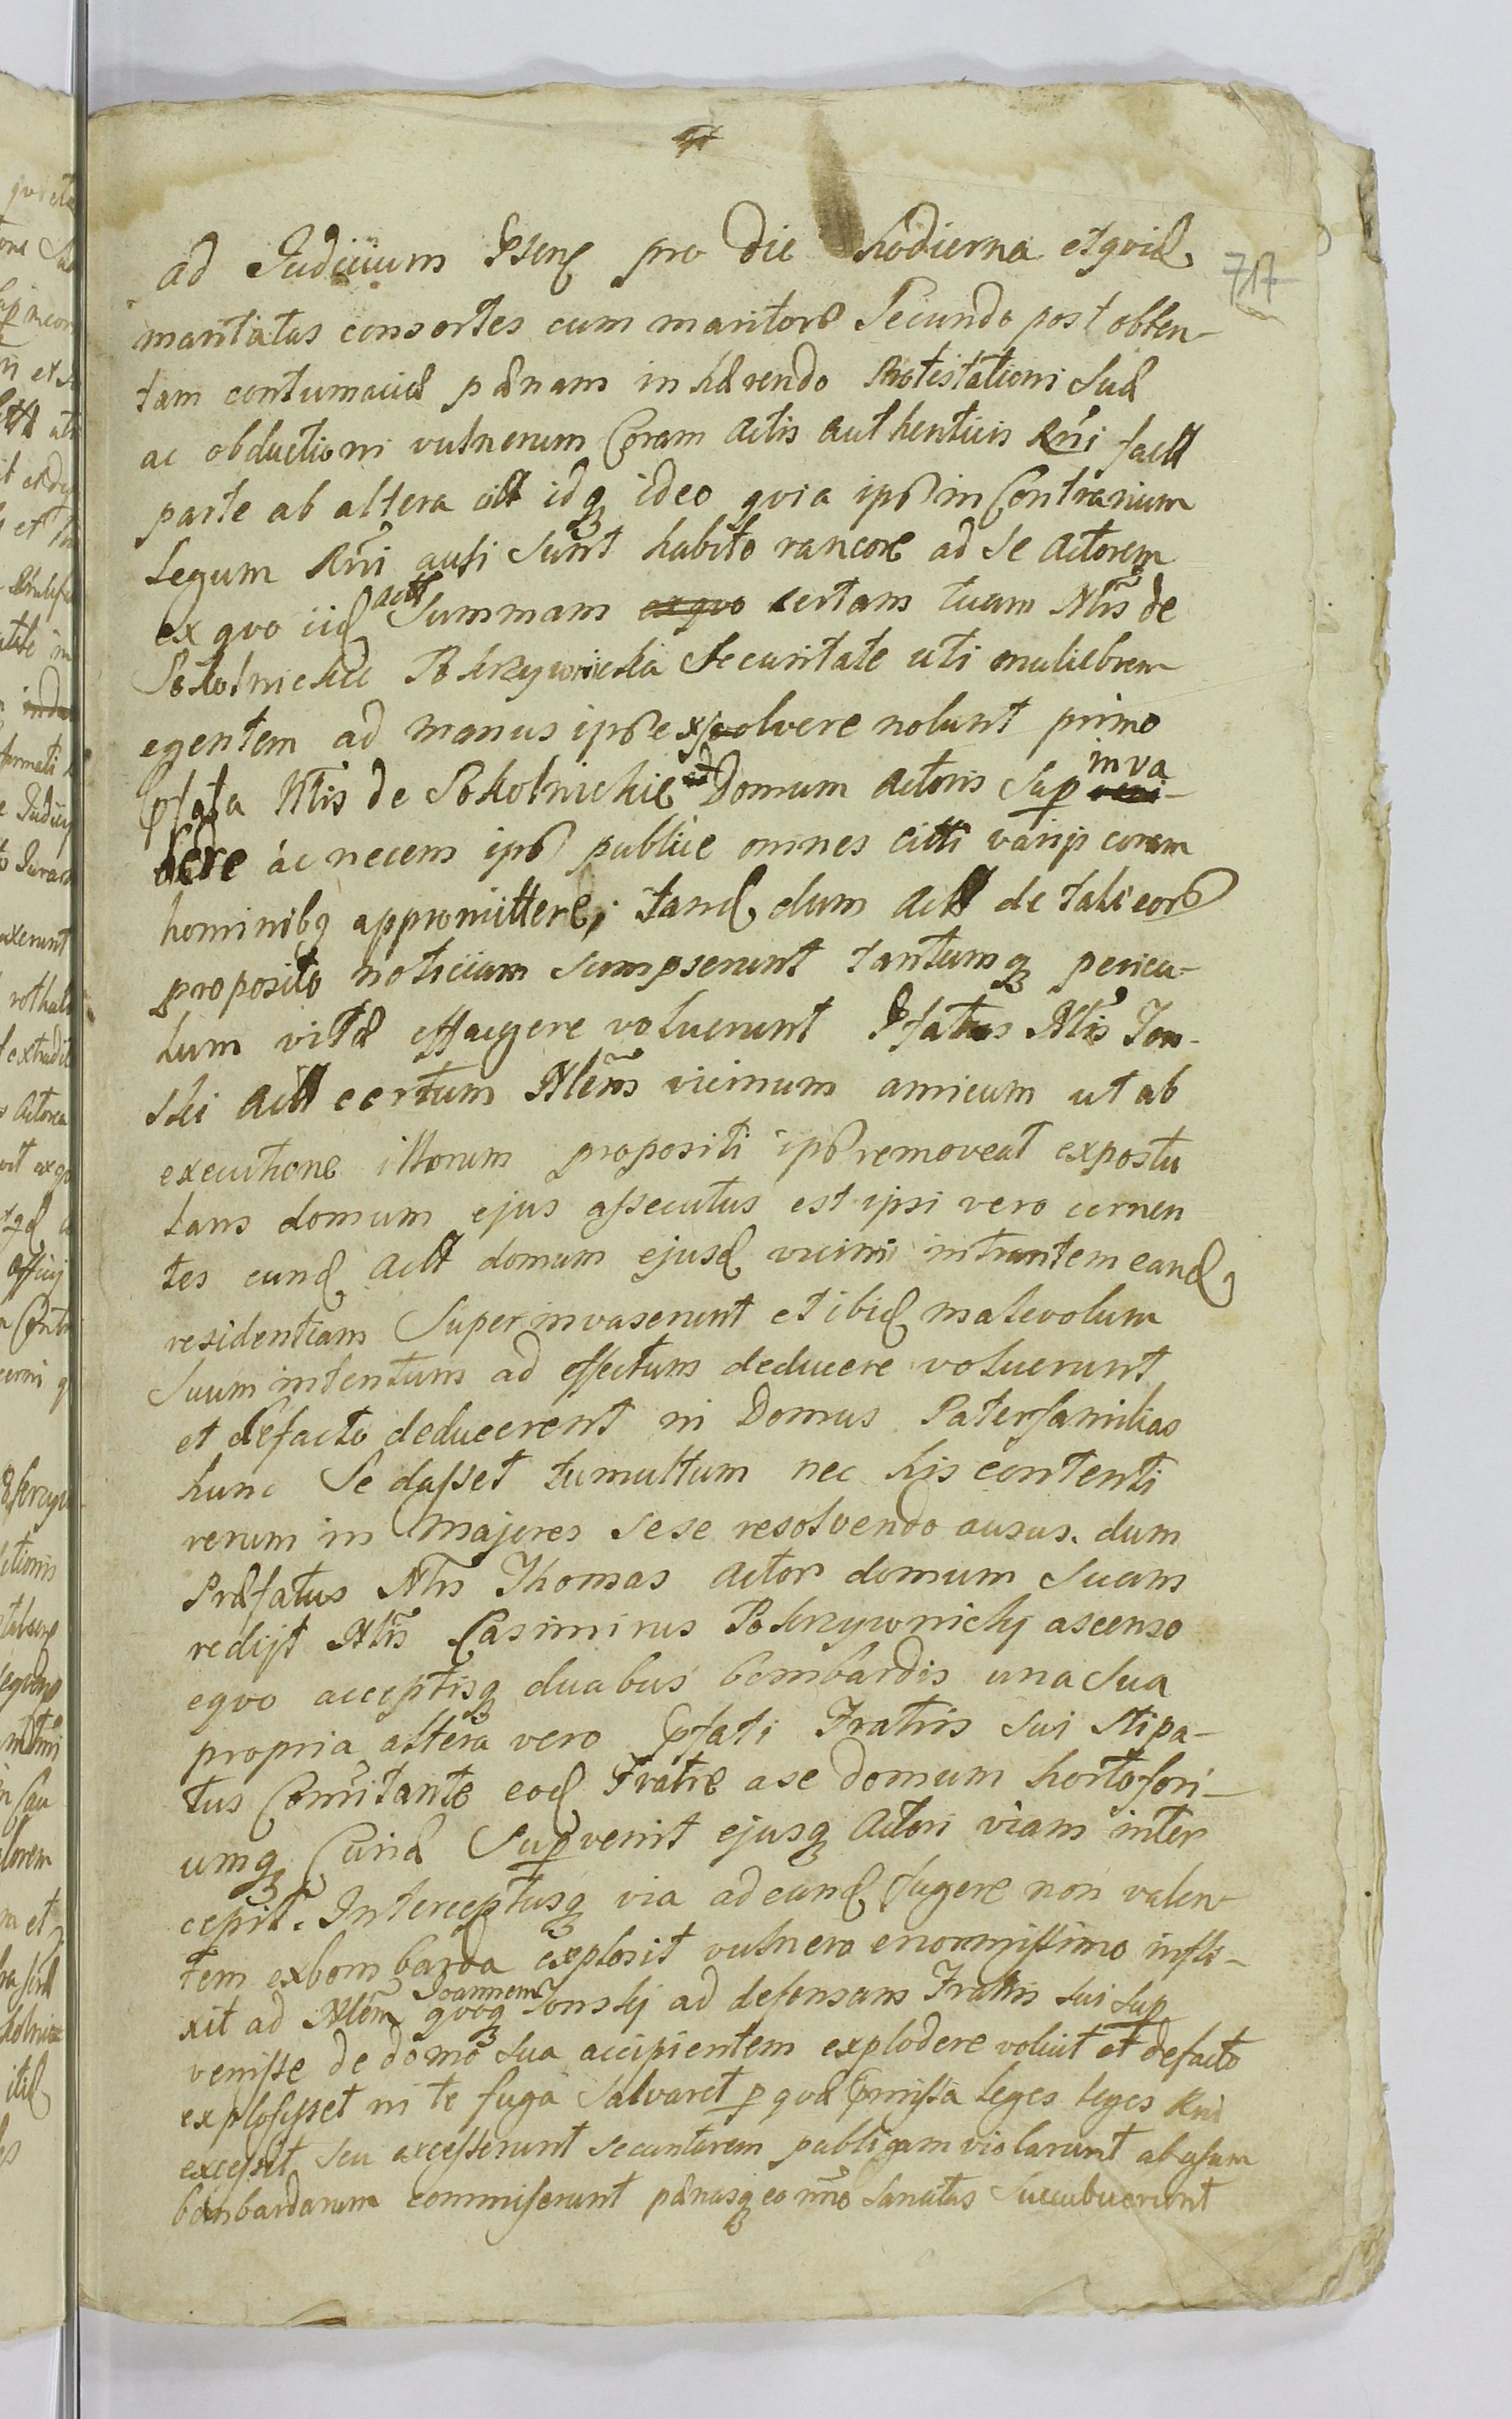 717
ad Judicium Psens pro die hodierna et quid
maritatas consortes cum maritor Secundo post obten-
tam contumaciæ pænam in hærendo Protestationi Suæ
ac obductioni vulnerum Coram Actis Authenticis Rni fact
parte ab altera idq ideo quia ips in Contrarium
Legum Rni ausi Sunt habito rancore ad Se Actorem
ex quo iid Act Summam certam tuam Nlis de
Sokolnickie Pokrzywnicka Securitate uti muliebrem
egentem ad manus ips exsolvere nolunt primo
Pfata Nlis de Sokolnickie Domum Actoris Sup inva
dere ac necem ips publice omnes citti varijs coram
hominibq appromittere, tand dum Act de tali eor
proposito noticiam Sumpserunt tantumq pericu-
lum vitæ effugere voluerunt Pfatus Nlis Jon-
ski Act certum Nlem vicinum amicum ut ab
executione illorum propositi ips removeat expostu
lans domum ejus assecutus est ipsi vero cernen
tes eund Act domum ejusd vicini intrantem eand
residentiam Superinvaserunt et ibid malevolum
Suum intentum ad effectum deducere voluerunt
et defacto deducerent ni Domus Paterfamilias
hunc Sedasset tumultum nec his contenti
rerum in majores sese resolvendo ausus. dum
Præfatus Nlis Thomas Actor domum Suam
redijt Nlis Casimirus Pokrzywnicky ascenso
equo acceptisq duabus bombardis una Sua
propria altera vero Pfati Fratris Sui Stipa-
tus Comitante eod Fratre a se domum hortofori-
umq Curiæ Supvenit ejusq Actori viam inter
cepit. Interceptusq via ad eand fugere non valen
tem ex bombarda explosit vulnera enormissimo infli-
xit ad Nlem Joannem quoq Jonsky ad defensam Fratris Sui Sup
venisse de domo Sua accipientem explodere voluit et defacto
explosisset ni te fuga Salvaret p quæ Pmissa leges leges Rni
excessit seu excesserunt Securitatem publicam violarunt abusum
bombardarum commiserunt pænasq eo nno Sanatas Succubuerunt